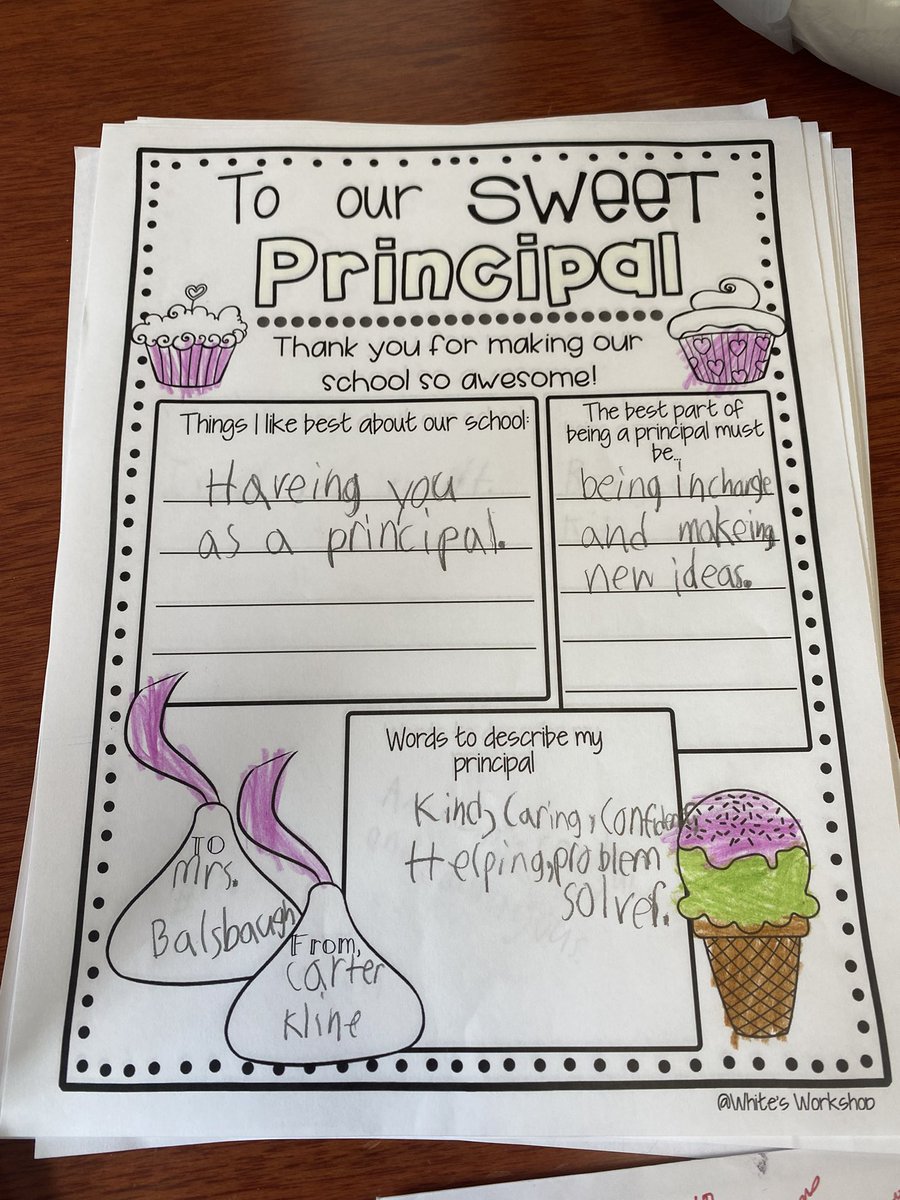 To our SWEET
Principal
Thank you for making our
school so awesome!
Things I like best about our school:
Haveing you
as a principal.
The best part of
being a principal must
be...
being incharge
and makeing
new ideas.
Words to describe my
principal
Kind, Caring, Confident,
Helping, problem
solver.
TO
Mrs.
Balsbaugh
From,
Carter
Kline
@White's Workshop